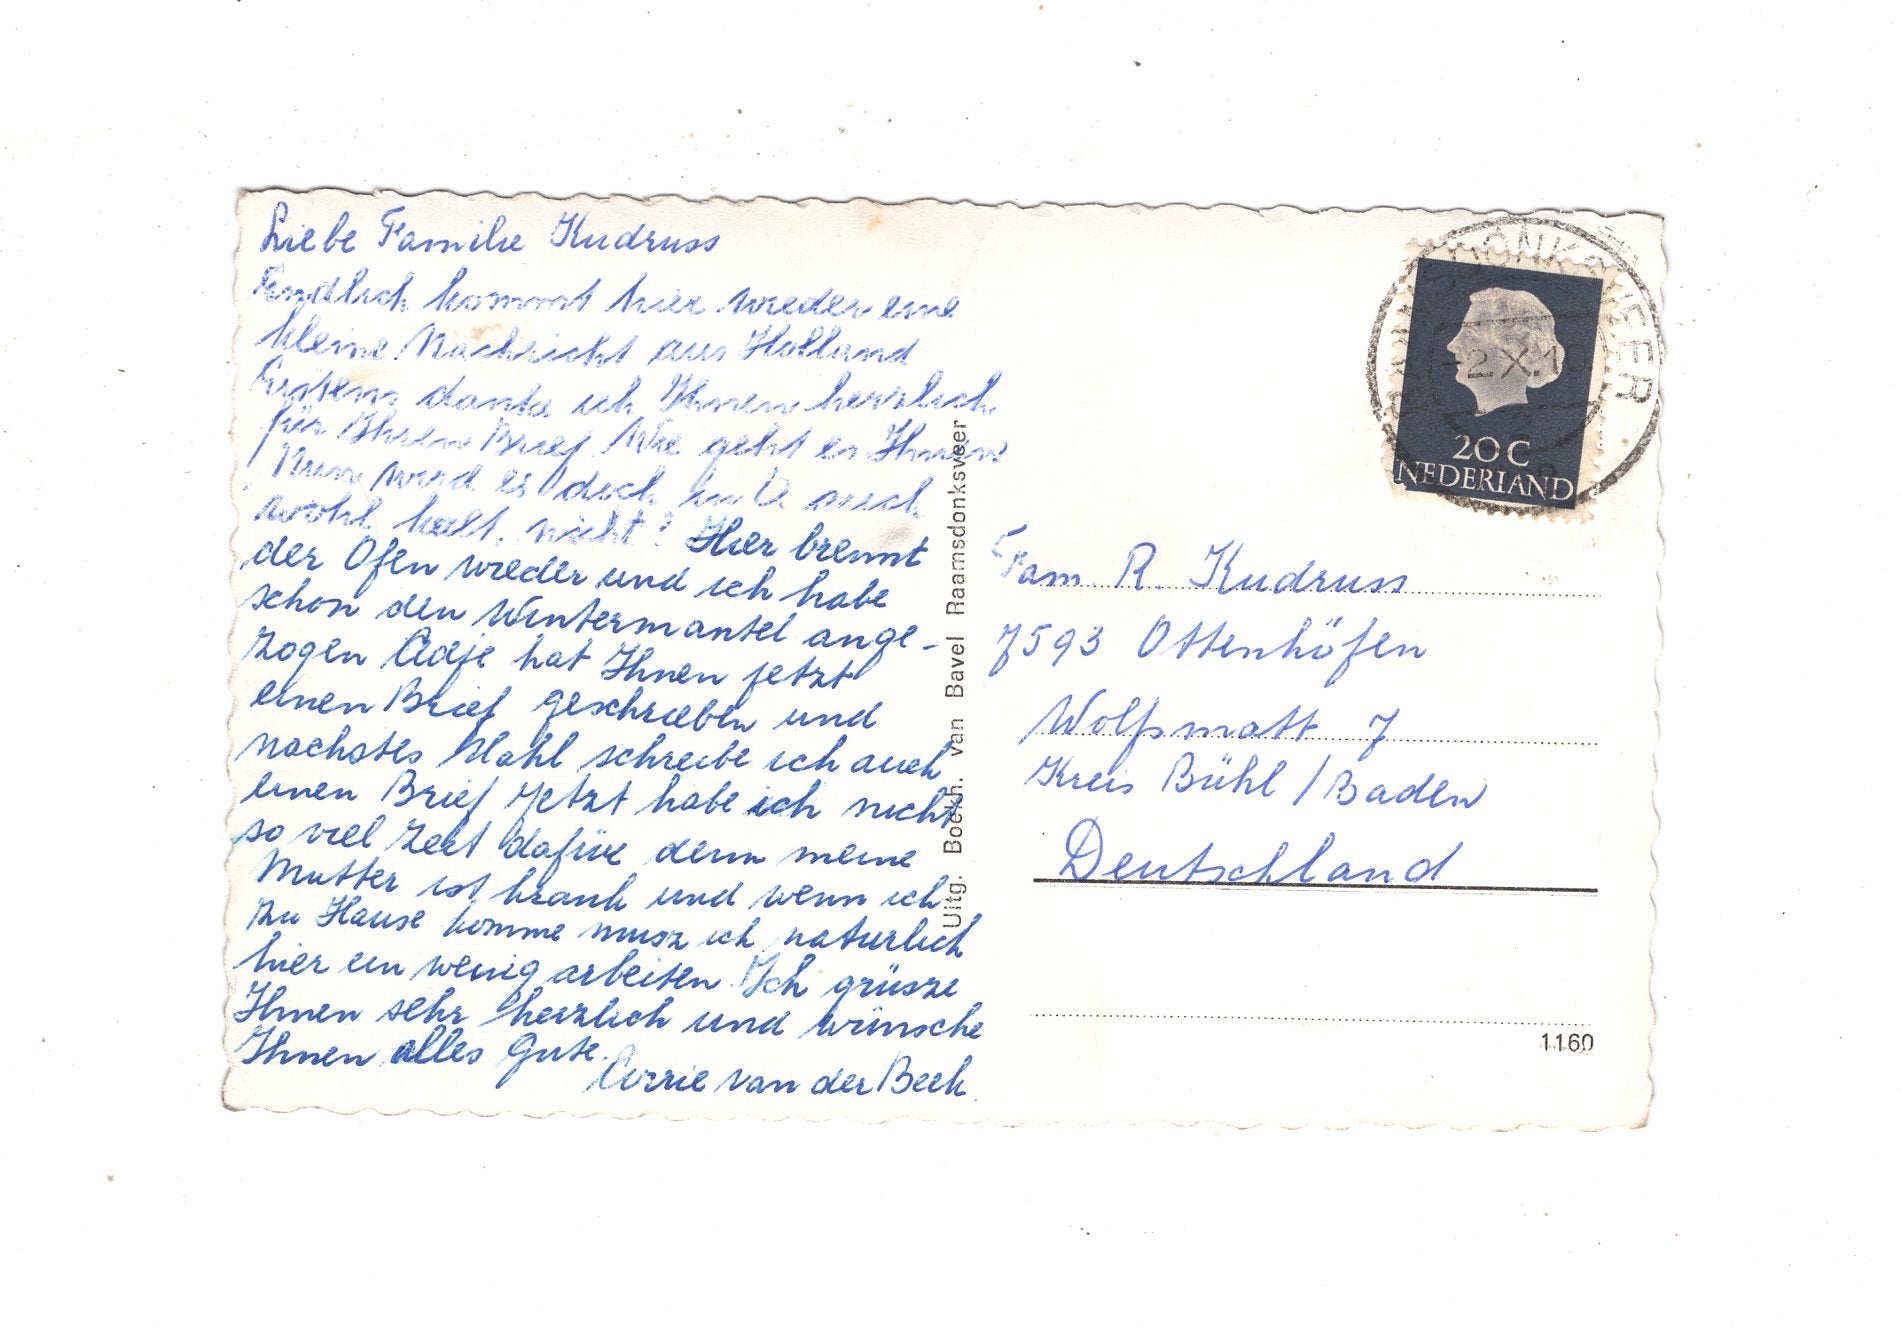 Liebe Familie Kudruss
Endlich kommt hier wieder eine
kleine Nachricht aus Holland
Erstens danke ich Ihnen herzlich
für Ihren Brief. Wie geht es Ihnen
Nun wird es doch in O auch
wohl kalt, nicht? Hier brennt
der Ofen wieder und ich habe
schon den Wintermantel ange-
zogen Adje hat Ihnen jetzt
einen Brief geschrieben und
nachstes Mahl schreibe ich auch
einen Brief Jetzt habe ich nicht
so viel Zeit dafür denn meine
Mutter ist krank und wenn ich
zu Hause komme musz ich naturlich
hier ein wenig arbeiten. Ich grüsze
Ihnen sehr herzlich und wünsche
Ihnen alles Gute.
Corrie van der Beek
Uitg. Boekh. van Bavel Raamsdonksveer
-2.X.10
20C
NEDERLAND
Fam. R. Kudruss
7593 Ottenhöfen
Wolfsmatt 7
Kreis Bühl / Baden
Deutschland
1160